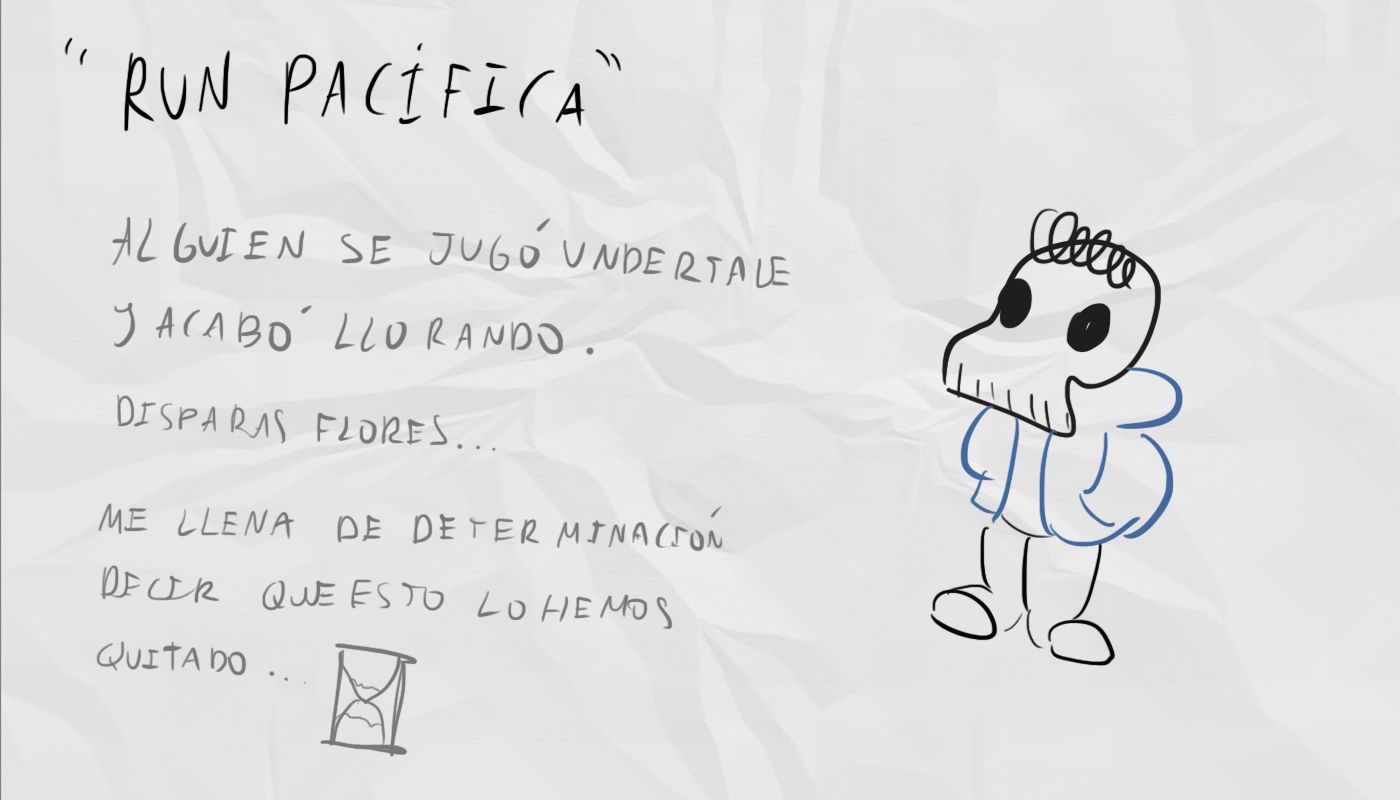 "RUN PACÍFICA"
ALGUIEN SE JUGÓ UNDERTALE
Y ACABÓ LLORANDO.
DISPARAS FLORES...
ME LLENA DE DETERMINACIÓN
DECIR QUE ESTO LO HEMOS
QUITADO...